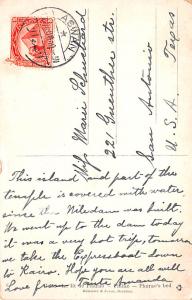 ASWAN
Miss Marie Schuchard
221 Guenther str.
San Antonio
U. S. A. Texas
This island and part of the
temple is covered with water
since the Niledam was built.
We went up to the dam today
it was a very hot trip, tomorrow
we take the Expressboat down
to Kairo. Hope you are all well
Love from Aunt Amanda
Pharao's bed